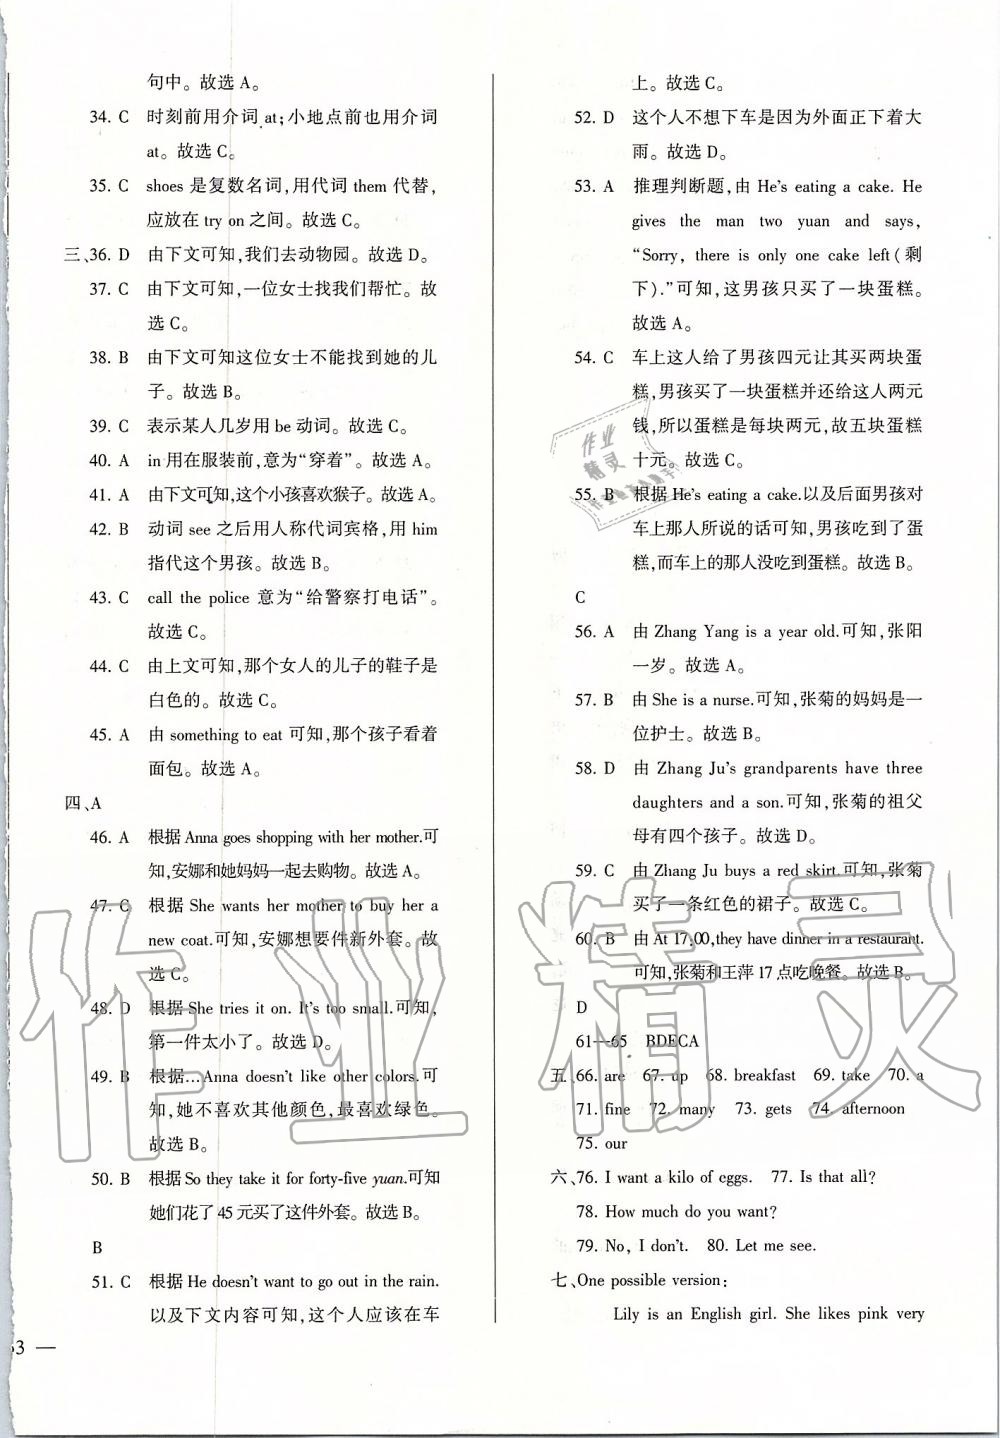 句中。故选 A。
34. C 时刻前用介词 at;小地点前也用介词
at。故选 C。
35. C shoes 是复数名词,用代词 them 代替,
应放在 try on 之间。故选 C。
三、36. D 由下文可知,我们去动物园。故选 D。
37. C 由下文可知,一位女士找我们帮忙。故
选 C。
38. B 由下文可知这位女士不能找到她的儿
子。故选 B。
39. C 表示某人几岁用 be 动词。故选 C。
40. A in 用在服装前,意为“穿着”。故选 A。
41. A 由下文可知,这个小孩喜欢猴子。故选 A。
42. B 动词 see 之后用人称代词宾格,用 him
指代这个男孩。故选 B。
43. C call the police 意为“给警察打电话”。
故选 C。
44. C 由上文可知,那个女人的儿子的鞋子是
白色的。故选 C。
45. A 由 something to eat 可知,那个孩子看着
面包。故选 A。
四、A
46. A 根据 Anna goes shopping with her mother.可
知,安娜和她妈妈一起去购物。故选 A。
47. C 根据 She wants her mother to buy her a
new coat.可知,安娜想要件新外套。故
选 C。
48. D 根据 She tries it on. It's too small.可知,
第一件太小了。故选 D。
49. B 根据…Anna doesn't like other colors.可
知,她不喜欢其他颜色,最喜欢绿色。
故选 B。
50. B 根据 So they take it for forty-five yuan.可知
她们花了 45 元买了这件外套。故选 B。
B
51. C 根据 He doesn't want to go out in the rain.
以及下文内容可知,这个人应该在车
53 —
上。故选 C。
52. D 这个人不想下车是因为外面正下着大
雨。故选 D。
53. A 推理判断题,由 He's eating a cake. He
gives the man two yuan and says,
“Sorry, there is only one cake left(剩
下).”可知,这男孩只买了一块蛋糕。
故选 A。
54. C 车上这人给了男孩四元让其买两块蛋
糕,男孩买了一块蛋糕并还给这人两元
钱,所以蛋糕是每块两元,故五块蛋糕
十元。故选 C。
55. B 根据 He's eating a cake.以及后面男孩对
车上那人所说的话可知,男孩吃到了蛋
糕,而车上的那人没吃到蛋糕。故选 B。
C
56. A 由 Zhang Yang is a year old.可知,张阳
一岁。故选 A。
57. B 由 She is a nurse.可知,张菊的妈妈是一
位护士。故选 B。
58. D 由 Zhang Ju's grandparents have three
daughters and a son.可知,张菊的祖父
母有四个孩子。故选 D。
59. C 由 Zhang Ju buys a red skirt.可知,张菊
买了一条红色的裙子。故选 C。
60. B 由 At 17:00,they have dinner in a restaurant.
可知,张菊和王萍 17 点吃晚餐。故选 B。
D
61—65 BDECA
五、66. are 67. up 68. breakfast 69. take 70. a
71. fine 72. many 73. gets 74. afternoon
75. our
六、76. I want a kilo of eggs. 77. Is that all?
78. How much do you want?
79. No, I don't. 80. Let me see.
七、One possible version:
Lily is an English girl. She likes pink very
作业精灵
作业
精灵